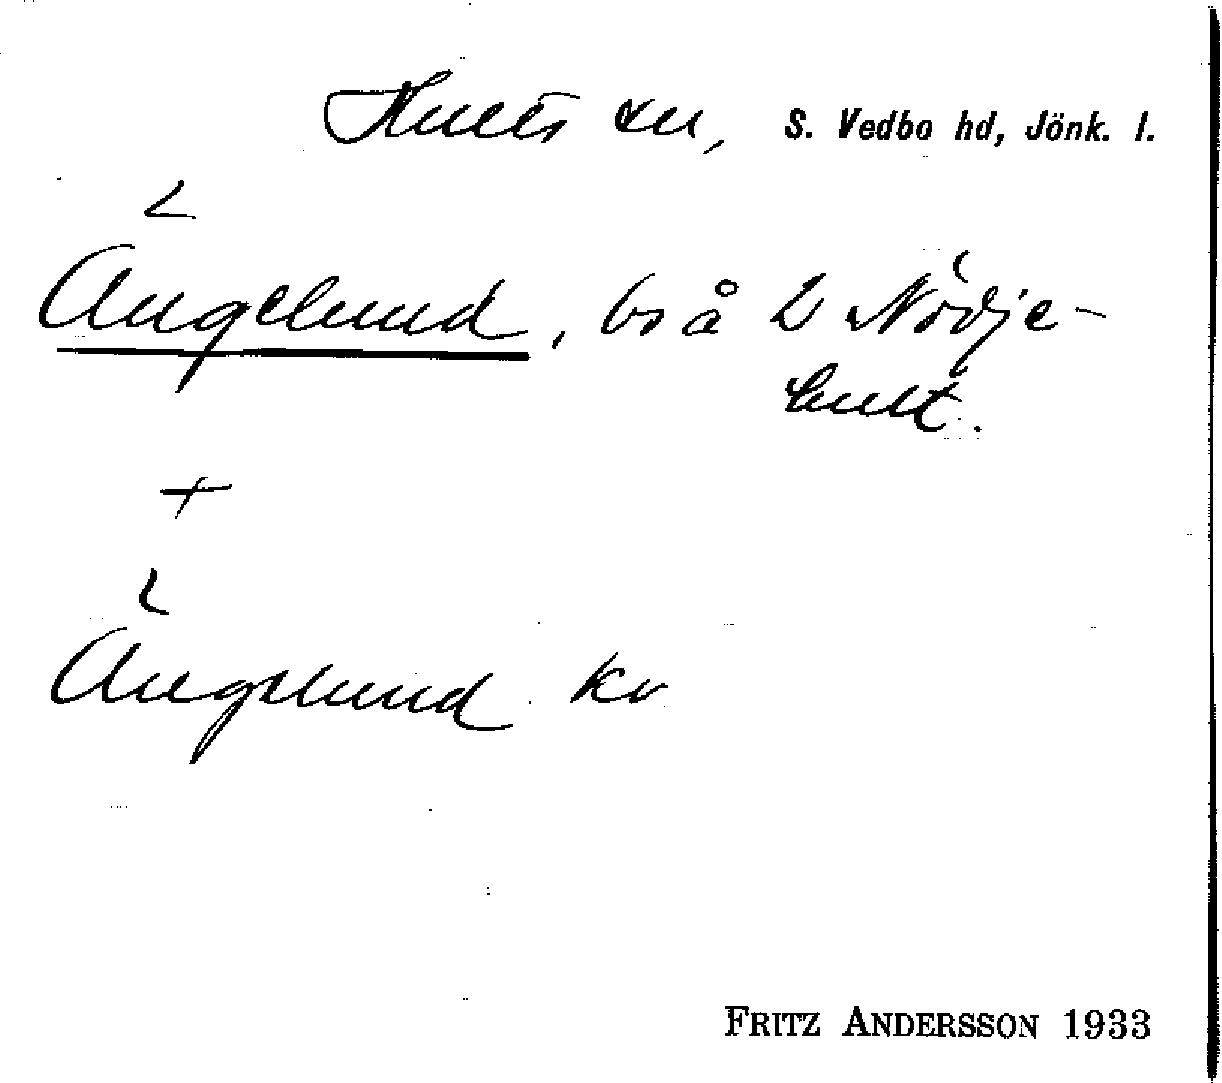 Hults sn, S. Vedbo hd, Jönk. l.
Ängelund, bs å L Nöbje-
hult.
+
Ängslund kv
FRITZ ANDERSSON 1933